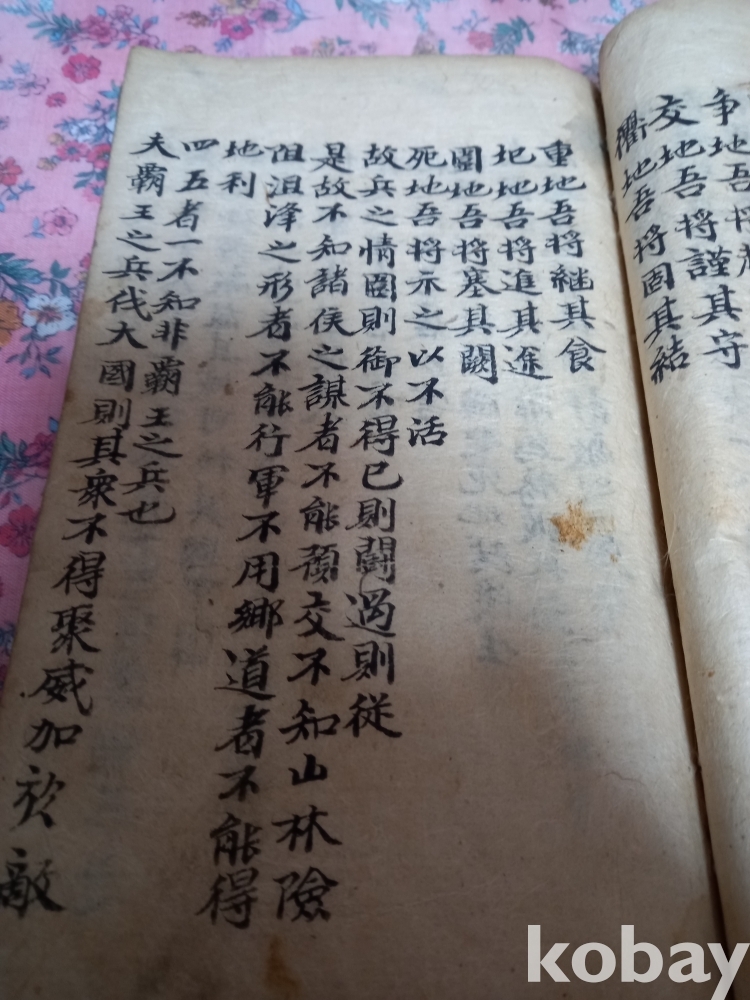 争地吾將
交地吾將謹其守
衢地吾將固其結
重地吾將継其食
圯地吾將進其途
圍地吾將塞其闕
死地吾將示之以不活
故兵之情圍則御不得已則鬪過則從
是故不知諸侯之謀者不能預交不知山林險
阻沮泽之形者不能行軍不用鄉道者不能得
地利
四五者一不知非霸王之兵也
夫霸王之兵伐大國則其衆不得聚威加於敵
kobay